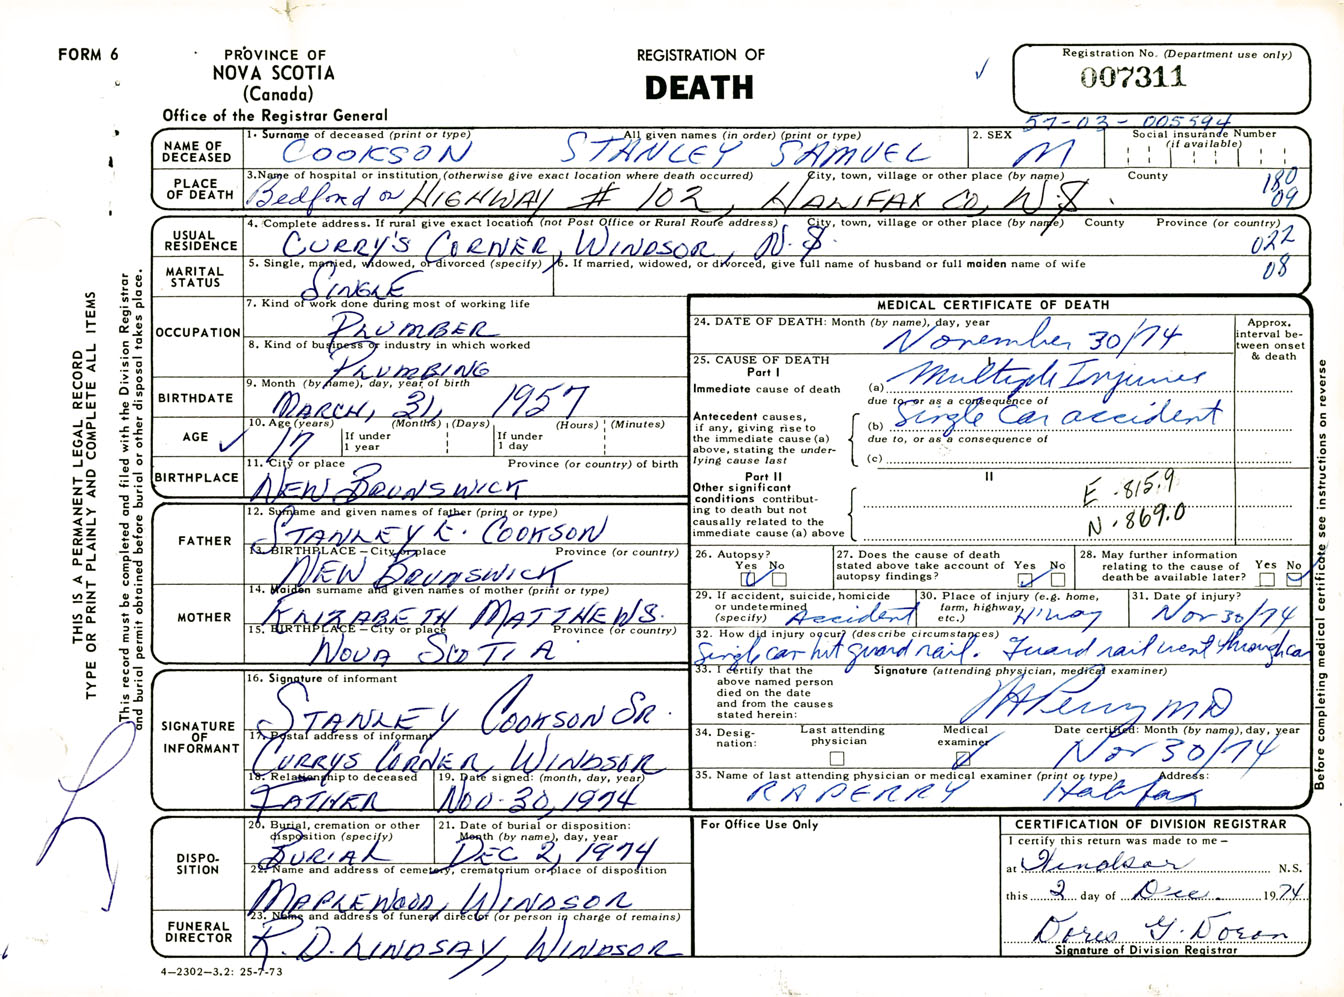 FORM 6
PROVINCE OF
NOVA SCOTIA
(Canada)
Office of the Registrar General
REGISTRATION OF
DEATH
Registration No. (Department use only)
007311
57-03-005594
NAME OF DECEASED
1. Surname of deceased (print or type) All given names (in order) (print or type)
COOKSON STANLEY SAMUEL
2. SEX
M
Social insurance Number
(if available)
PLACE OF DEATH
3. Name of hospital or institution (otherwise give exact location where death occurred) City, town, village or other place (by name) County
Bedford on HIGHWAY # 102, HALIFAX CO, N.S.
180
09
USUAL RESIDENCE
4. Complete address. If rural give exact location (not Post Office or Rural Route address) City, town, village or other place (by name) County Province (or country)
CURRY'S CORNER, WINDSOR, N.S.
022
08
MARITAL STATUS
5. Single, married, widowed, or divorced (specify)
SINGLE
6. If married, widowed, or divorced, give full name of husband or full maiden name of wife
OCCUPATION
7. Kind of work done during most of working life
PLUMBER
8. Kind of business or industry in which worked
PLUMBING
BIRTHDATE
9. Month (by name), day, year of birth
MARCH, 31, 1957
AGE
10. Age (years) (Months) (Days) (Hours) (Minutes)
17 If under 1 year If under 1 day
BIRTHPLACE
11. City or place Province (or country) of birth
NEW BRUNSWICK
FATHER
12. Surname and given names of father (print or type)
STANLEY E. COOKSON
13. BIRTHPLACE – City or place Province (or country)
NEW BRUNSWICK
MOTHER
14. Maiden surname and given names of mother (print or type)
ELIZABETH MATTHEWS.
15. BIRTHPLACE – City or place Province (or country)
NOVA SCOTIA
SIGNATURE OF INFORMANT
16. Signature of informant
STANLEY COOKSON SR.
17. Postal address of informant
CURRYS CORNER, WINDSOR
18. Relationship to deceased
FATHER
19. Date signed: (month, day, year)
NOV. 30, 1974
DISPO-
SITION
20. Burial, cremation or other disposition (specify)
BURIAL
21. Date of burial or disposition: Month (by name), day, year
DEC 2, 1974
22. Name and address of cemetery, crematorium or place of disposition
MAPLEWOOD, WINDSOR
FUNERAL DIRECTOR
23. Name and address of funeral director (or person in charge of remains)
R. D. LINDSAY, WINDSOR
4–2302–3.2: 25-7-73
MEDICAL CERTIFICATE OF DEATH
24. DATE OF DEATH: Month (by name), day, year
November 30/74
Approx. interval be-
tween onset & death
25. CAUSE OF DEATH
Part I
Immediate cause of death
(a) Multiple Injuries
due to, or as a consequence of
Antecedent causes, if any, giving rise to the immediate cause (a) above, stating the under-
lying cause last
(b) Single Car accident
due to, or as a consequence of
(c)
Part II
II
Other significant conditions contribut-
ing to death but not causally related to the immediate cause (a) above
E - 815.9
N - 869.0
26. Autopsy?
Yes No
27. Does the cause of death stated above take account of autopsy findings?
Yes No
28. May further information relating to the cause of death be available later?
Yes No
29. If accident, suicide, homicide or undetermined (specify)
Accident
30. Place of injury (e.g. home, farm, highway, etc.)
H'way
31. Date of injury?
Nov 30/74
32. How did injury occur? (describe circumstances)
Single car hit guard rail. Guard rail went through car
33. I certify that the above named person died on the date and from the causes stated herein:
Signature (attending physician, medical examiner)
RA Perry MD
34. Desig-
nation:
Last attending physician
Medical examiner
Date certified: Month (by name), day, year
Nov 30/74
35. Name of last attending physician or medical examiner (print or type) Address:
RA PERRY Halifax
For Office Use Only
CERTIFICATION OF DIVISION REGISTRAR
I certify this return was made to me –
at Windsor N.S.
this 2 day of Dec. 1974
Doris G. Doran
Signature of Division Registrar
THIS IS A PERMANENT LEGAL RECORD
TYPE OR PRINT PLAINLY AND COMPLETE ALL ITEMS
This record must be completed and filed with the Division Registrar
and burial permit obtained before burial or other disposal takes place.
Before completing medical certificate see instructions on reverse